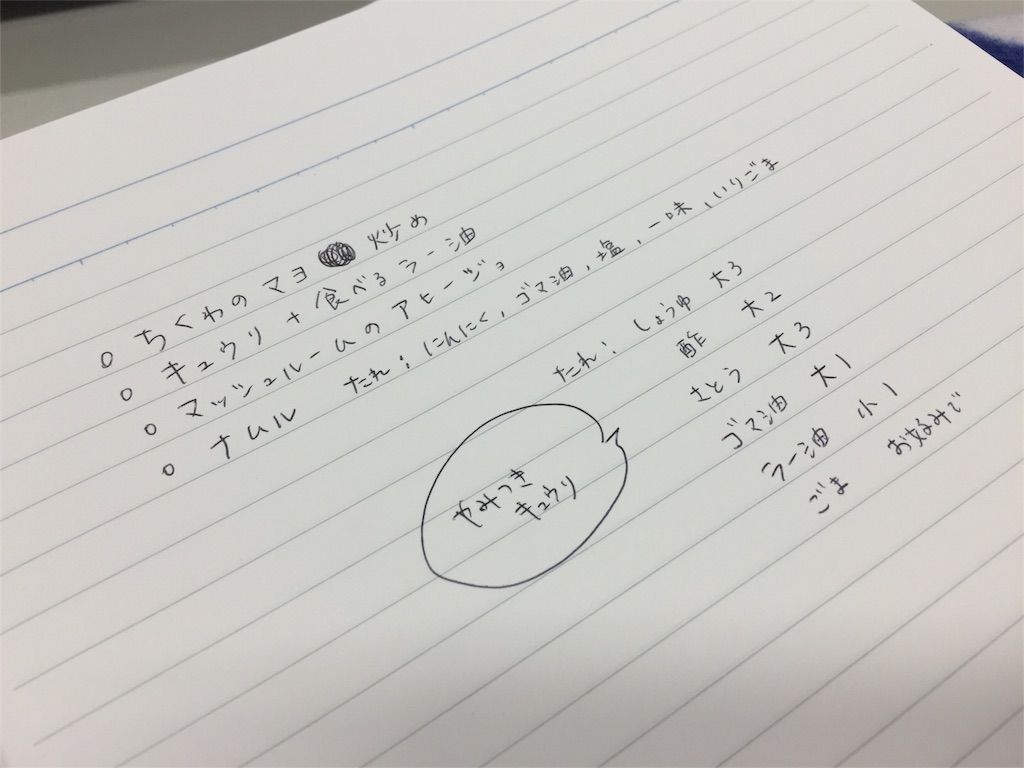 ○ ちくわのマヨ 炒め
○ キュウリ + 食べるラー油
○ マッシュルームのアヒージョ
○ ナムル たれ: にんにく, ゴマ油, 塩, 一味, いりごま
たれ: しょうゆ 大3
酢 大2
さとう 大3
ゴマ油 大1
ラー油 小1
ごま お好みで
やみつき
キュウリ